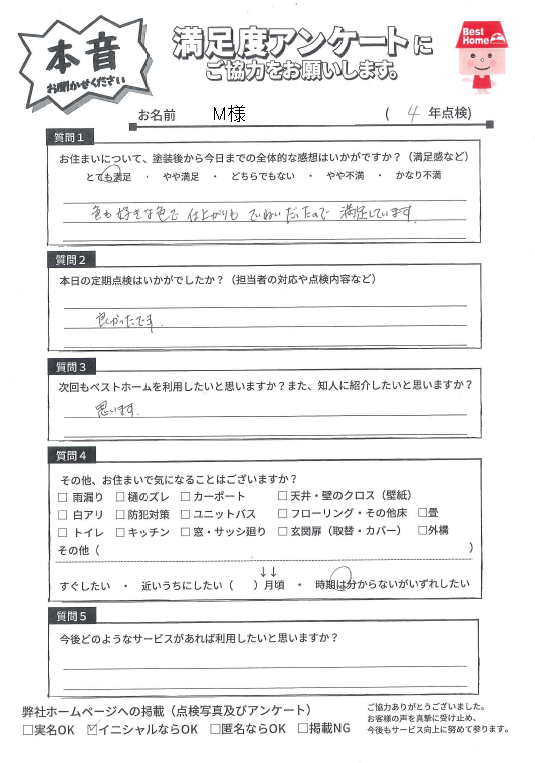 本音
お聞かせください
満足度アンケートに
ご協力をお願いします。
Best Home
お名前 M様 ( 4 年点検)
質問1
お住まいについて、塗装後から今日までの全体的な感想はいかがですか？（満足感など）
とても満足 ・ やや満足 ・ どちらでもない ・ やや不満 ・ かなり不満
色も好きな色で 仕上がりも ていねいだったので 満足しています。
質問2
本日の定期点検はいかがでしたか？（担当者の対応や点検内容など）
良かったです。
質問3
次回もベストホームを利用したいと思いますか？また、知人に紹介したいと思いますか？
思います。
質問4
その他、お住まいで気になることはございますか？
□ 雨漏り □ 樋のズレ □ カーポート □ 天井・壁のクロス（壁紙）
□ 白アリ □ 防犯対策 □ ユニットバス □ フローリング・その他床 □畳
□ トイレ □ キッチン □ 窓・サッシ廻り □ 玄関扉（取替・カバー） □外構
その他（ ）
↓↓
すぐしたい ・ 近いうちにしたい（ ）月頃 ・ 時期は分からないがいずれしたい
質問5
今後どのようなサービスがあれば利用したいと思いますか？
弊社ホームページへの掲載（点検写真及びアンケート）
□実名OK ☑イニシャルならOK □匿名ならOK □掲載NG
ご協力ありがとうございました。
お客様の声を真摯に受け止め、
今後もサービス向上に努めて参ります。